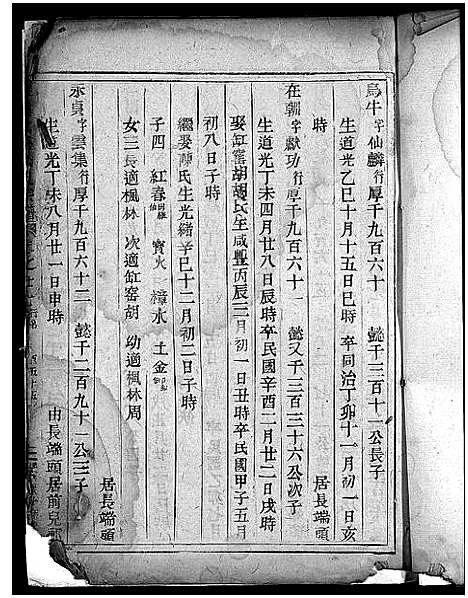 烏牛字仙麟行厚千九百六十 懿千三百十一公長子
生道光乙巳十月十五日巳時卒同治丁卯十一月初一日亥
時 居長端頭
在朝字獻功行厚千九百六十一 懿又千三百三十六公次子
生道光丁未四月廿八日辰時卒民國辛酉二月廿二日戌時
娶缸窰胡胡氏生咸豐丙辰三月初一日丑時卒民國甲子五月
初八日子時
繼娶 氏生光緒辛巳十二月初二日子時
子四 紅春 寶火 樟水 土金
女三長適楓林 次適缸窰胡 幼適楓林周
居長端頭
永貞字雲集行厚千九百六十三 懿千二百九十一公三子
生道光丁未八月廿一日申時 由長端頭居前